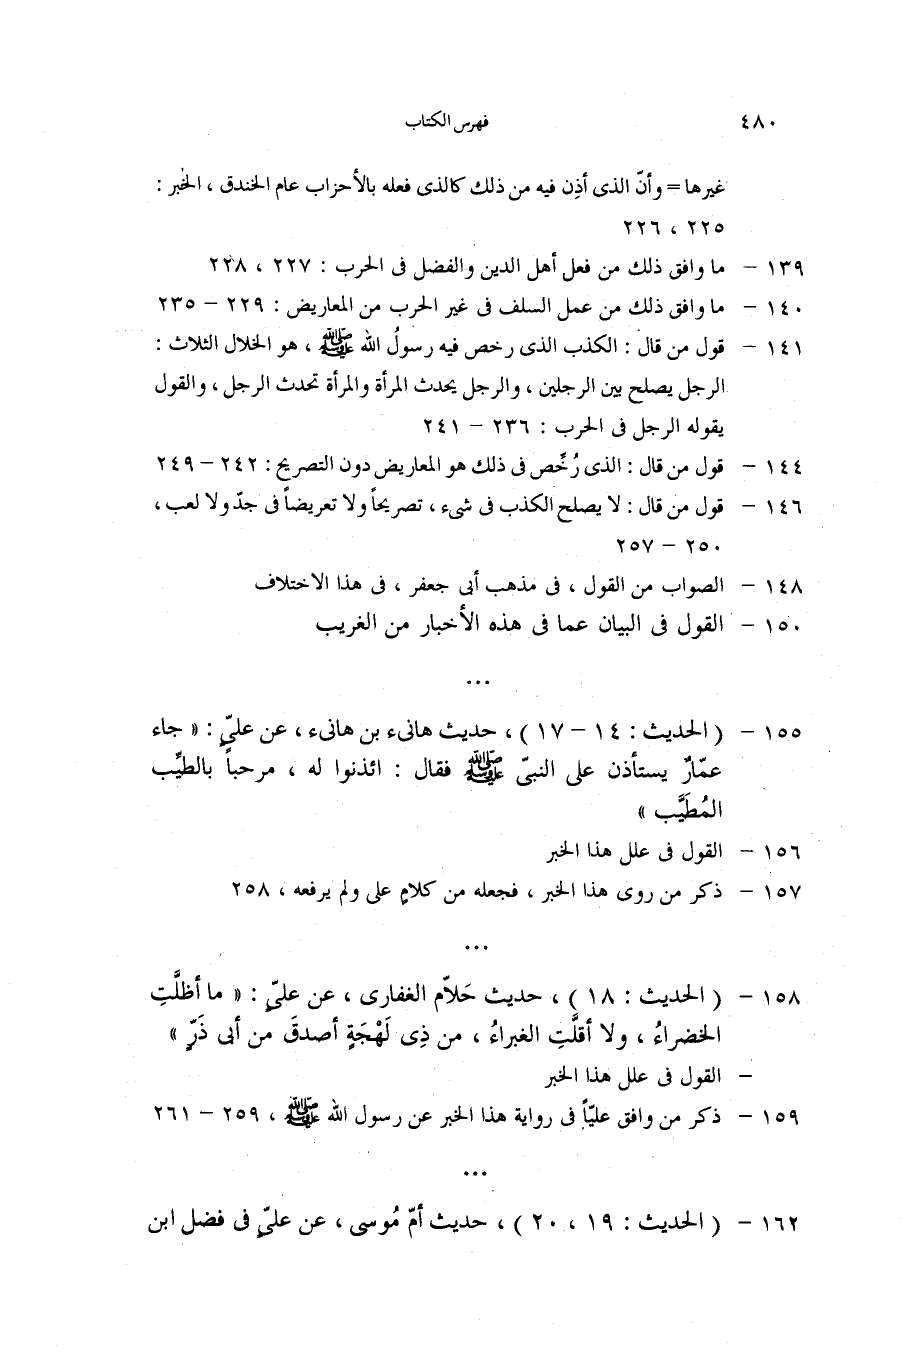 ٤٨٠ فهرس الكتاب
غيرها = وأنّ الذى أذِن فيه من ذلك كالذى فعله بالأحزاب عام الخندق ، الخبر :
٢٢٥ ، ٢٢٦
١٣٩ – ما وافق ذلك من فعل أهل الدين والفضل فى الحرب : ٢٢٧ ، ٢٢٨
١٤٠ – ما وافق ذلك من عمل السلف فى غير الحرب من المعاريض : ٢٢٩ – ٢٣٥
١٤١ – قول من قال : الكذب الذى رخص فيه رسولُ الله ﷺ ، هو الخلال الثلاث :
الرجل يصلح بين الرجلين ، والرجل يحدث المرأة والمرأة تحدث الرجل ، والقول
يقوله الرجل فى الحرب : ٢٣٦ – ٢٤١
١٤٤ – قول من قال : الذى رُخِّص فى ذلك هو المعاريض دون التصريح : ٢٤٢ – ٢٤٩
١٤٦ – قول من قال : لا يصلح الكذب فى شىء ، تصريحاً ولا تعريضاً فى جدّ ولا لعب ،
٢٥٠ – ٢٥٧
١٤٨ – الصواب من القول ، فى مذهب أبى جعفر ، فى هذا الاختلاف
١٥٠ – القول فى البيان عما فى هذه الأخبار من الغريب
...
١٥٥ – ( الحديث : ١٤ – ١٧ ) ، حديث هانىء بن هانىء ، عن علىّ : « جاء
عمّارٌ يستأذن على النبىّ ﷺ فقال : ائذنوا له ، مرحباً بالطيِّب
المُطَيَّب »
١٥٦ – القول فى علل هذا الخبر
١٥٧ – ذكر من روى هذا الخبر ، فجعله من كلامِ على ولم يرفعه ، ٢٥٨
...
١٥٨ – ( الحديث : ١٨ ) ، حديث حَلاّم الغفارى ، عن علىّ : « ما أظلَّتِ
الخضراءُ ، ولا أقلَّتِ الغبراءُ ، من ذِى لَهْجَةٍ أصدقَ من أبى ذَرّ »
– القول فى علل هذا الخبر
١٥٩ – ذكر من وافق عليّاً فى رواية هذا الخبر عن رسول الله ﷺ ، ٢٥٩ – ٢٦١
...
١٦٢ – ( الحديث : ١٩ ، ٢٠ ) ، حديث أمّ مُوسى ، عن علىّ فى فضل ابن